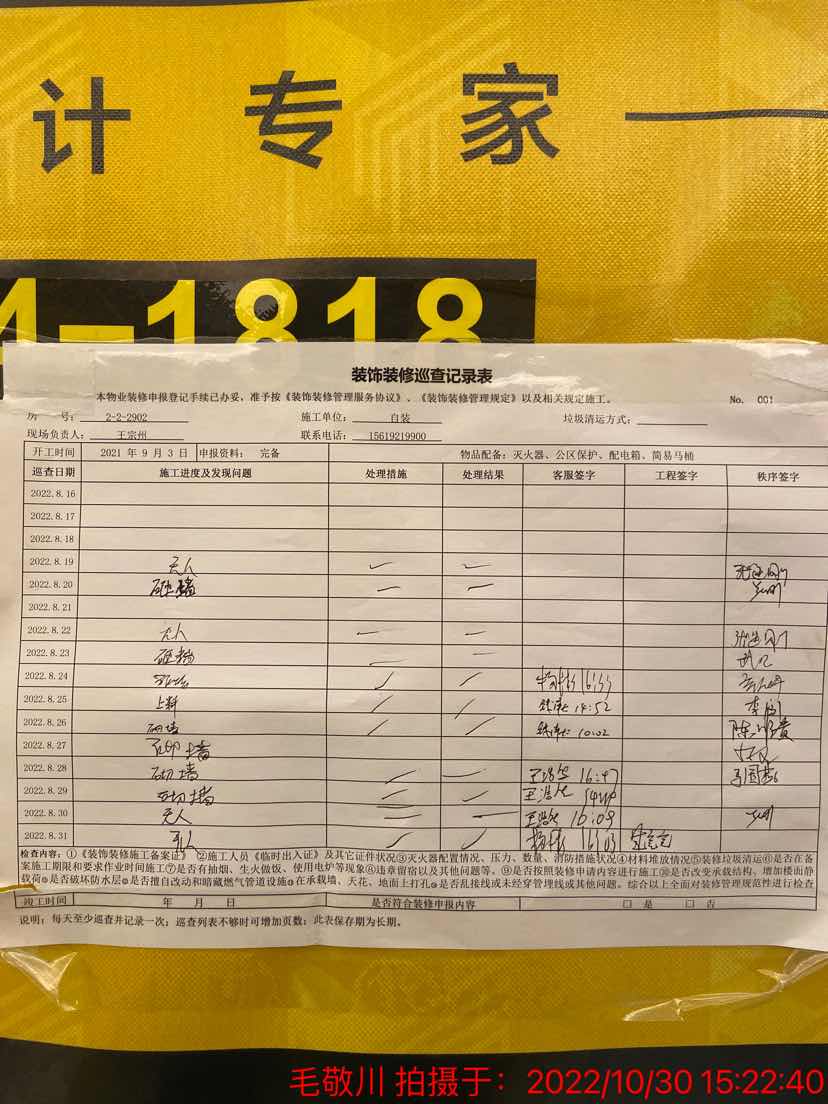 计专家
4-1818
装饰装修巡查记录表
本物业装修申报登记手续已办妥，准予按《装饰装修管理服务协议》、《装饰装修管理规定》以及相关规定施工。 No. 001
房 号： 2-2-2902 施工单位： 自装 垃圾清运方式：
现场负责人： 王宗州 联系电话： 15619219900
开工时间 2021 年 9 月 3 日 申报资料： 完备 物品配备：灭火器、公区保护、配电箱、简易马桶
巡查日期 施工进度及发现问题 处理措施 处理结果 客服签字 工程签字 秩序签字
2022.8.16
2022.8.17
2022.8.18
2022.8.19 无人
2022.8.20 砸墙
2022.8.21
2022.8.22 无人
2022.8.23 砸墙
2022.8.24 16:55
2022.8.25 上料 14:52 李
2022.8.26 砌墙 10:02 陈
2022.8.27 砌墙
2022.8.28 砌墙 16:47
2022.8.29 砌墙
2022.8.30 无人 16:09
2022.8.31 无人
检查内容：①《装饰装修施工备案证》 ②施工人员《临时出入证》及其它证件状况③灭火器配置情况、压力、数量、消防措施状况④材料堆放情况⑤装修垃圾清运⑥是否在备
案施工期限和要求作业时间施工⑦是否有抽烟、生火做饭、使用电炉等现象⑧违章留宿以及其他问题等。⑨是否按照装修申请内容进行施工⑩是否改变承载结构、增加楼面静
荷载 是否破坏防水层 是否擅自改动和暗藏燃气管道设施 在承载墙、天花、地面上打孔 是否乱接线或未经穿管埋线或其他问题。综合以上全面对装修管理规范性进行检查
竣工时间 年 月 日 是否符合装修申报内容 □ 是 □ 否
说明：每天至少巡查并记录一次；巡查列表不够时可增加页数；此表保存期为长期。
毛敬川 拍摄于：2022/10/30 15:22:40